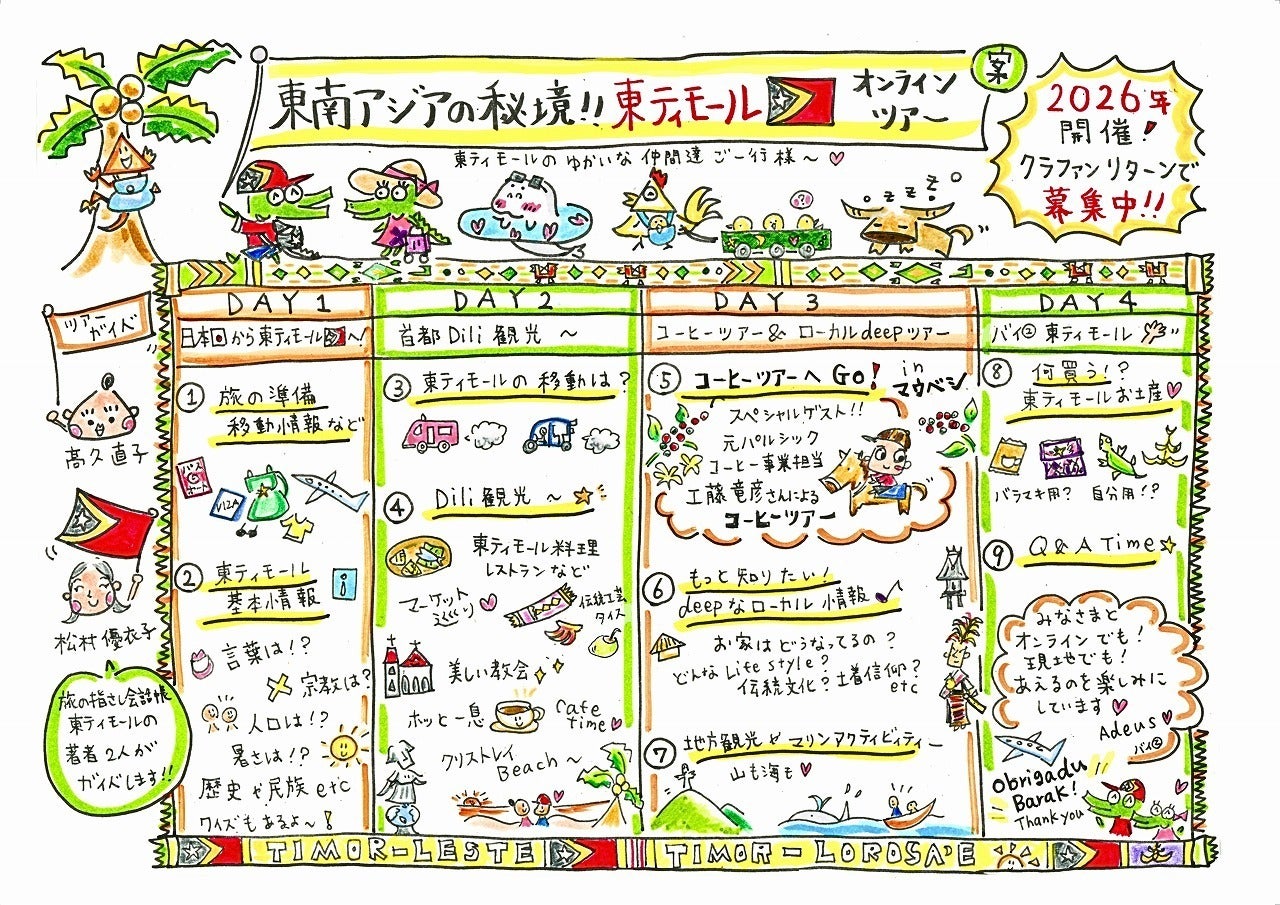 東南アジアの秘境!! 東ティモール
オンライン
ツアー
案
2026年
開催!
クラファンリターンで
募集中!!
東ティモールのゆかいな仲間達ご一行様〜♡
zzz
?
ツアー
ガイド
高久 直子
松村優衣子
旅の指さし会話帳
東ティモールの
著者2人が
ガイドします!!
DAY 1
日本から東ティモールへ!
① 旅の準備
移動情報など
パスポート
VIZA
② 東ティモール
基本情報
i
言葉は!?
宗教は?
人口は!?
暑さは!?
歴史や民族etc
クイズもあるよ〜!
DAY 2
首都Dili観光 〜
③ 東ティモールの移動は?
④ Dili観光 〜☆
東ティモール料理
レストランなど
マーケット
巡り♡
伝統工芸
タイス
美しい教会
ホッと一息
Cafe
time♡
クリストレイ
Beach〜
DAY 3
コーヒーツアー& ローカルdeepツアー
⑤ コーヒーツアーへ GO! in
マウベシ
スペシャルゲスト!!
元パルシック
コーヒー事業担当
工藤竜彦さんによる
コーヒーツアー
⑥ もっと知りたい!
deepなローカル情報♪
お家はどうなってるの?
どんなLife style?
伝統文化?土着信仰?
etc
⑦ 地方観光やマリンアクティビティー
山も海も♡
DAY 4
バイ②東ティモール
⑧ 何買う!?
東ティモールお土産♡
バラマキ用? 自分用!?
⑨ Q&A Time☆
みなさまと
オンラインでも!
現地でも!
あえるのを楽しみに
しています♡
Adeus♡
バイ②
Obrigadu
Barak!
Thank you
TIMOR-LESTE
TIMOR-LOROSA'E